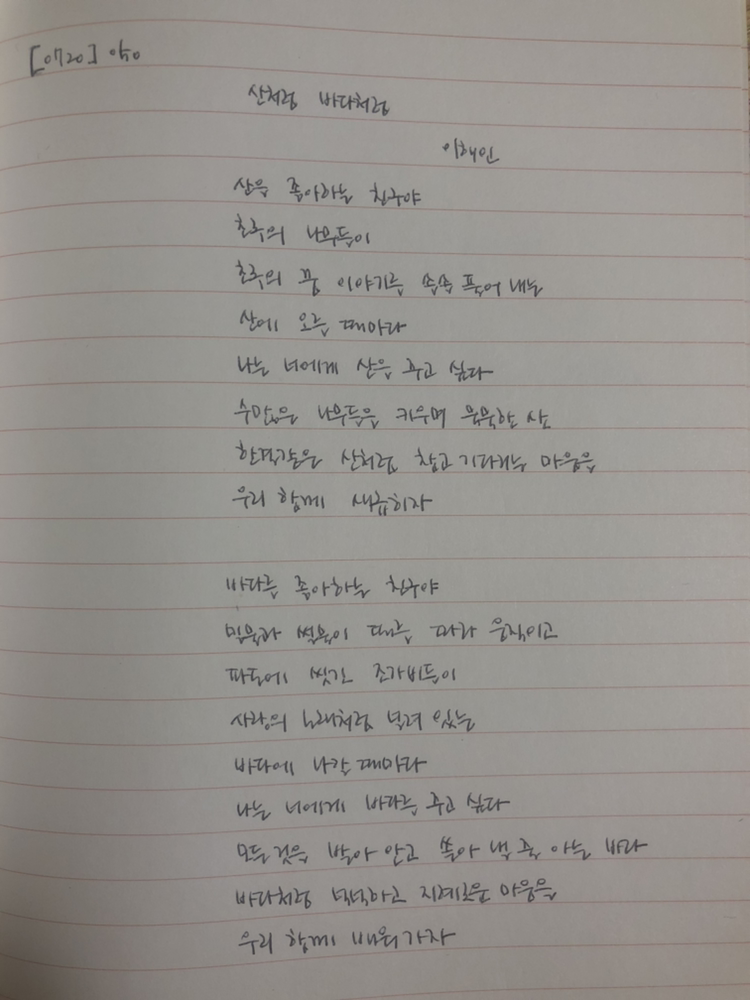 [0720]
산처럼 바다처럼
이해인
산을 좋아하는 친구야
초록의 나무들이
초록의 꿈 이야기를 솔솔 풀어 내는
산에 오를 때마다
나는 너에게 산을 주고 싶다
수많은 나무들을 키우며 묵묵한 산
한결같은 산처럼 참고 기다리는 마음을
우리 함께 새롭히자
바다를 좋아하는 친구야
밀물과 썰물이 때를 따라 움직이고
파도에 씻긴 조가비들이
사랑의 노래처럼 널려 있는
바다에 나갈 때마다
나는 너에게 바다를 주고 싶다
모든 것을 받아 안고 쏟아 낼 줄 아는 바다
바다처럼 넉넉하고 지혜로운 마음을
우리 함께 배워가자